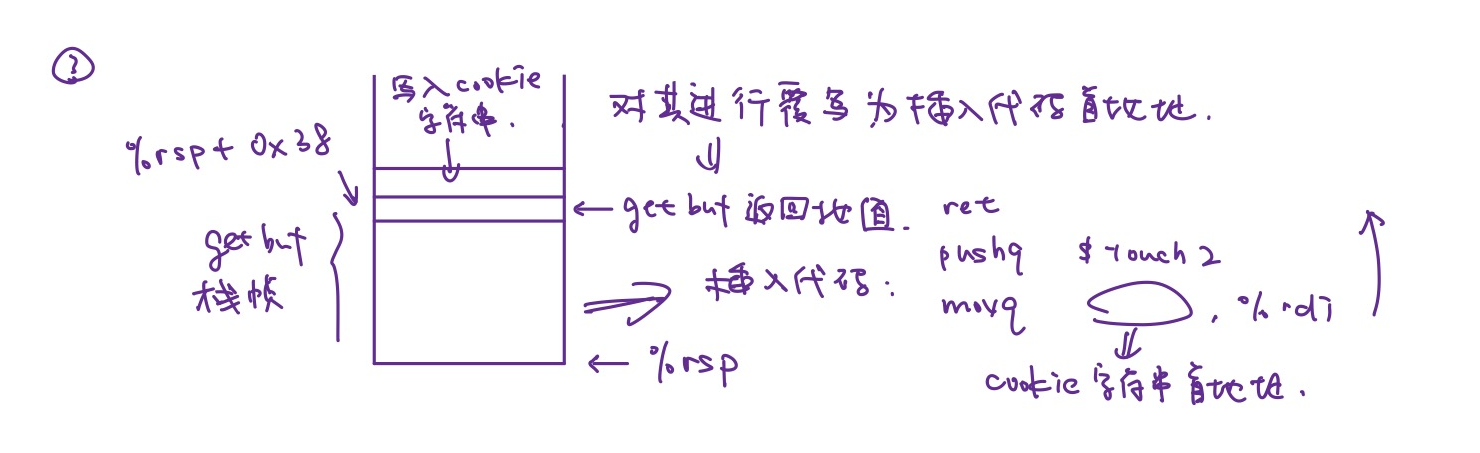 ③
写入cookie
字符串.
对其进行覆写为插入代码首地址.
%rsp+0x38
← getbuf 返回地址.
ret
getbuf
栈帧
插入代码:
pushq $touch2
movq , %rdi
← %rsp
cookie字符串首地址.